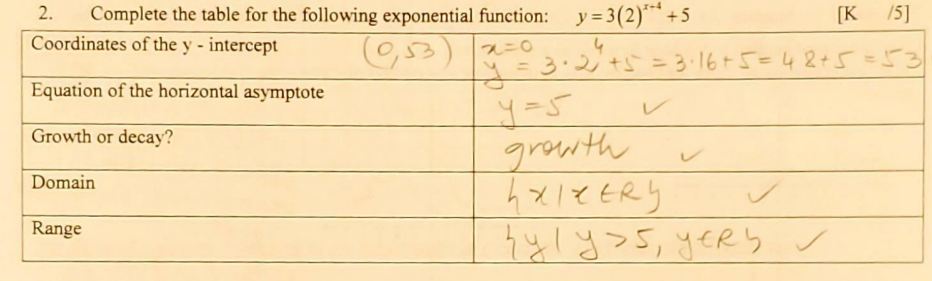 2. Complete the table for the following exponential function: y = 3(2)^{x+4} + 5 [K /5]
Coordinates of the y - intercept (0,53) x=0
y = 3·2^4+5 = 3·16+5 = 48+5 = 53
Equation of the horizontal asymptote y=5 ✓
Growth or decay? growth ✓
Domain {x|x∈R} ✓
Range {y|y>5, y∈R} ✓